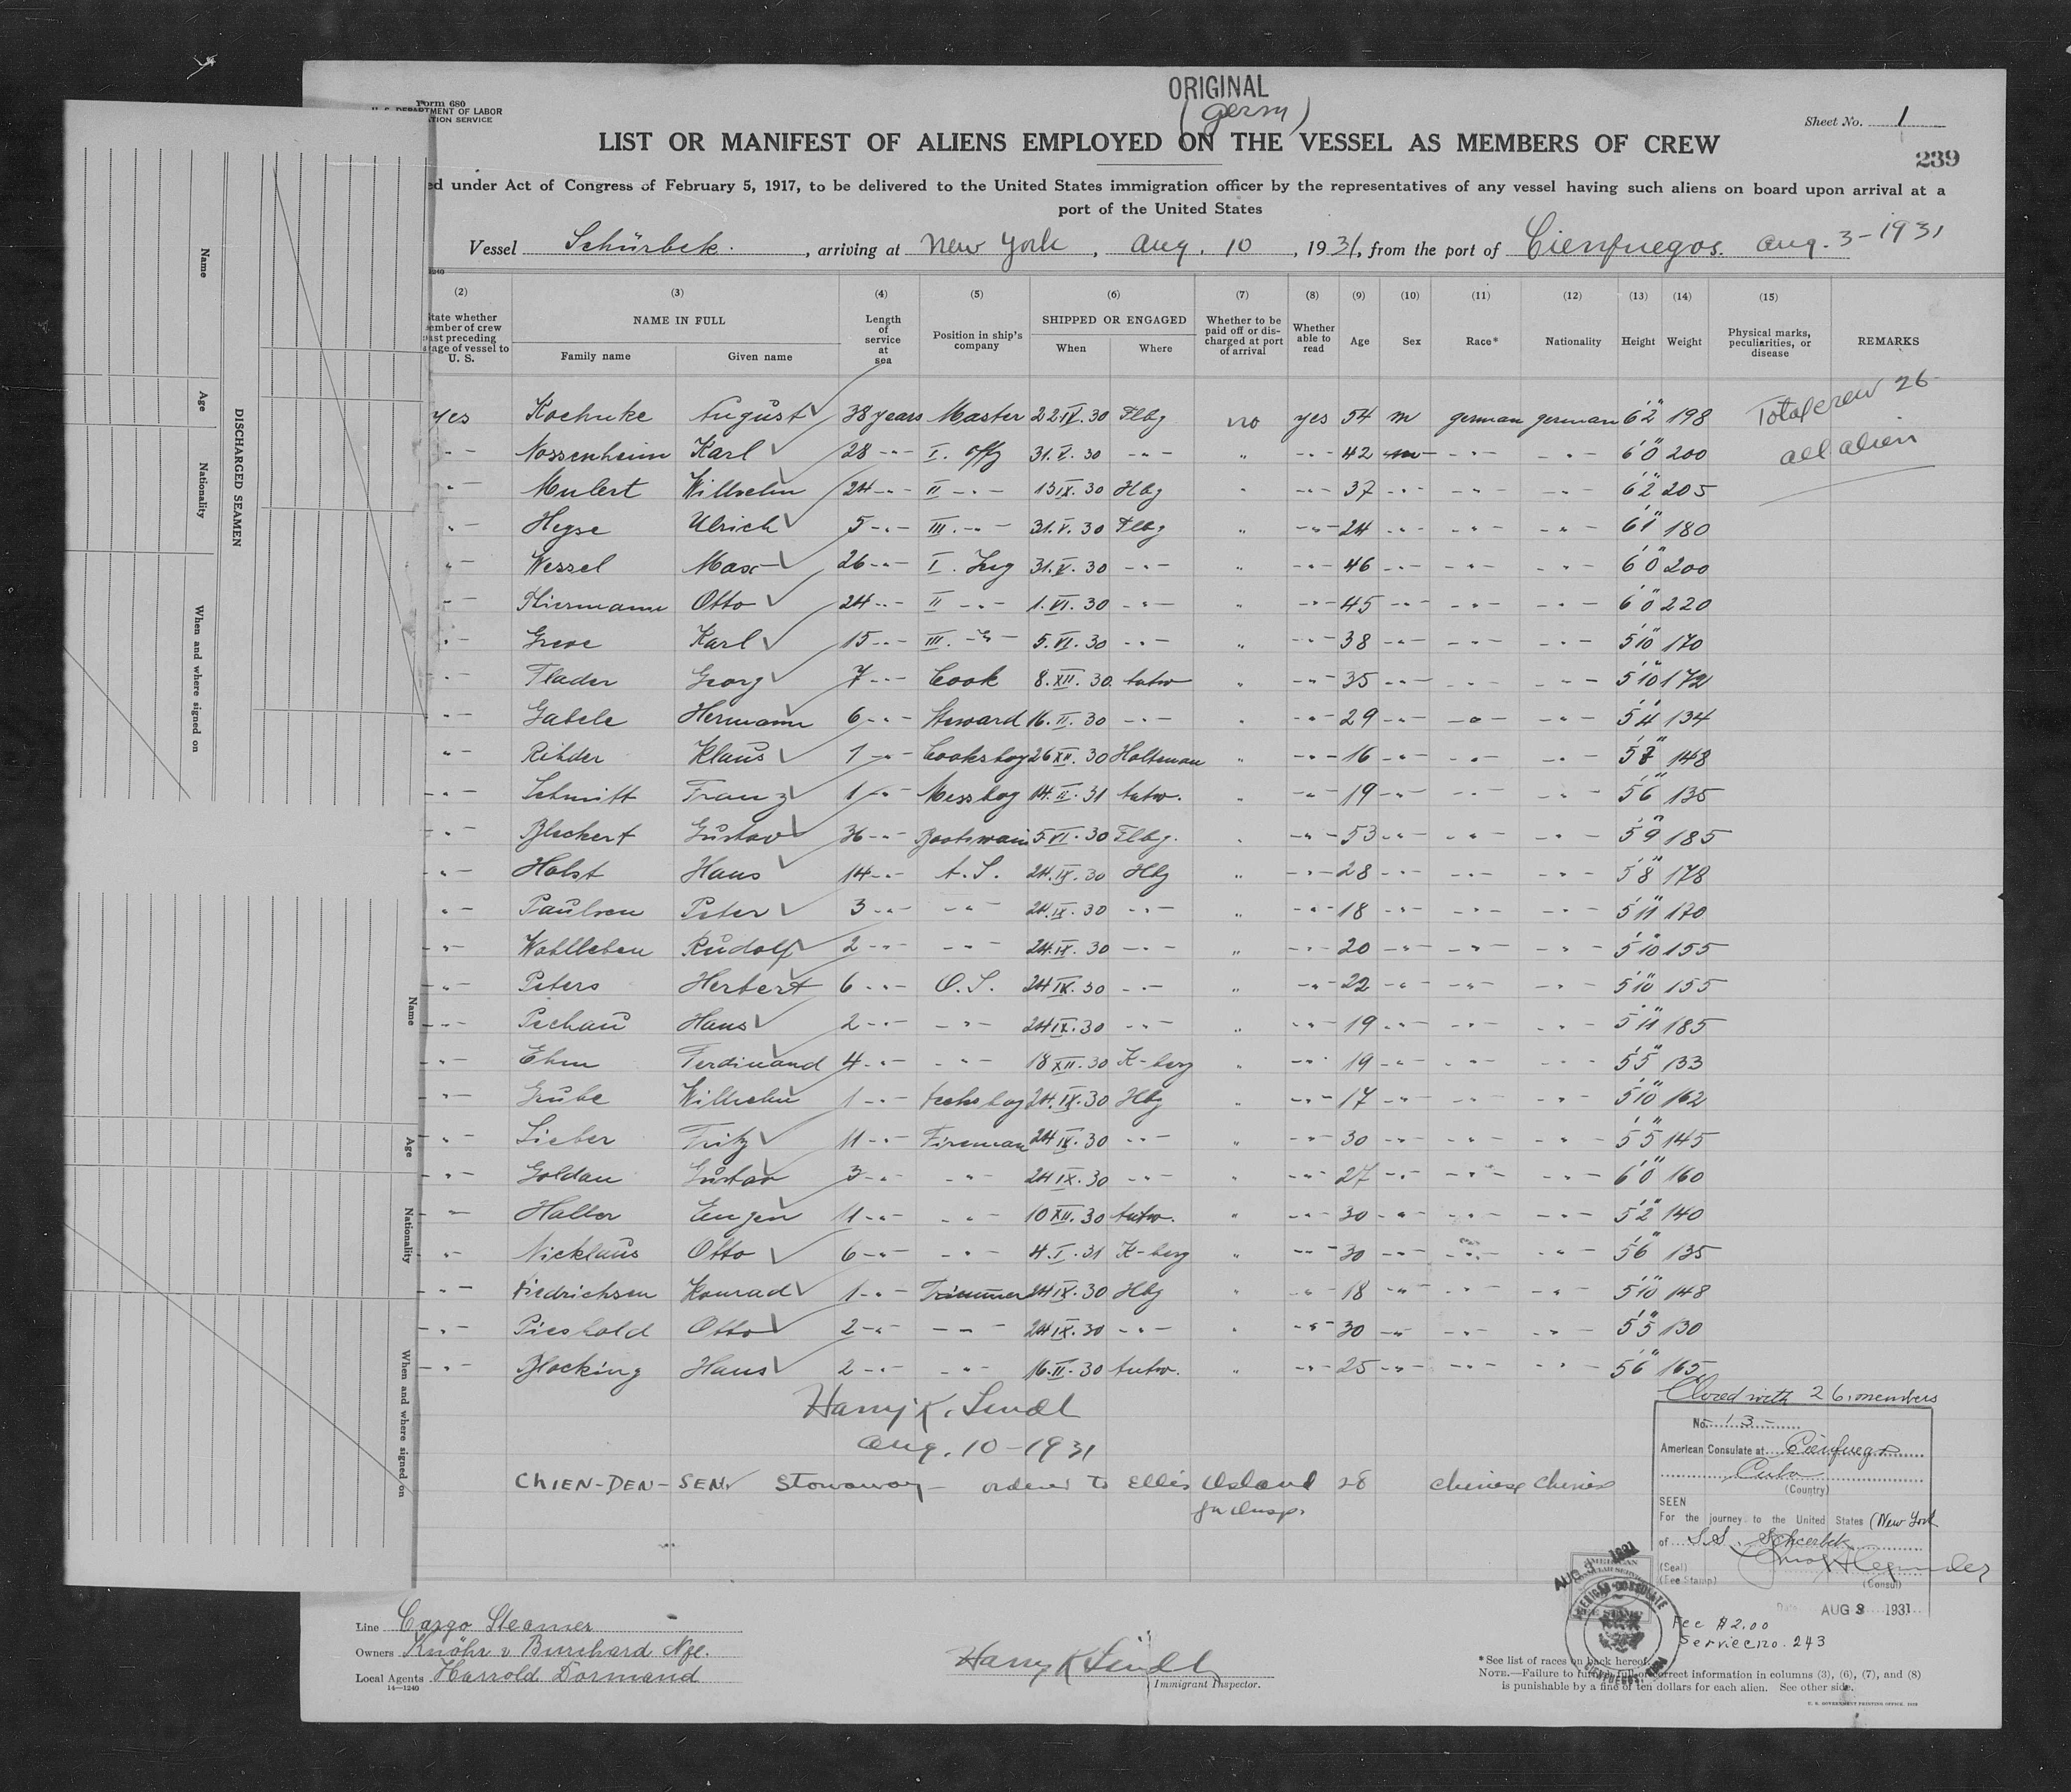 ORIGINAL
(germ)
Form 680
U. S. DEPARTMENT OF LABOR
TION SERVICE
Sheet No. 1
LIST OR MANIFEST OF ALIENS EMPLOYED ON THE VESSEL AS MEMBERS OF CREW
239
ed under Act of Congress of February 5, 1917, to be delivered to the United States immigration officer by the representatives of any vessel having such aliens on board upon arrival at a
port of the United States
Vessel Schürbek. , arriving at New York , Aug. 10 , 1931, from the port of Cienfuegos. Aug. 3-1931
(2) (3) (4) (5) (6) (7) (8) (9) (10) (11) (12) (13) (14) (15)
State whether member of crew last preceding voyage of vessel to U. S.
NAME IN FULL
Family name Given name
Length of service at sea
Position in ship's company
SHIPPED OR ENGAGED
When Where
Whether to be paid off or discharged at port of arrival
Whether able to read
Age Sex Race* Nationality Height Weight
Physical marks, peculiarities, or disease
REMARKS
Total crew 26
all alien
yes Kochnke August 38 years Master 22.IV.30 Flbg no yes 54 m german german 6'2" 198
-"- Nossenheim Karl 28 -"- I. Offz 31.V.30 -"- " -"- 42 m -"- -"- 6'0" 200
-"- Mulert Wilhelm 24 -"- II -"- 13 IX.30 Hbg " -"- 37 -"- -"- -"- 6'2" 205
-"- Heyse Ulrich 5 -"- III. -"- 31.V.30 Flbg " -"- 24 -"- -"- -"- 6'1" 180
-"- Wessel Max 26 -"- I. Ing 31.V.30 -"- " -"- 46 -"- -"- -"- 6'0" 200
-"- Thiermann Otto 24 -"- II -"- 1.VI.30 -"- -"- 45 -"- -"- -"- 6'0" 220
-"- Greve Karl 15 -"- III. -"- 5.VI.30 -"- " -"- 38 -"- -"- -"- 5'10" 170
-"- Flader Georg 7 -"- Cook 8.XII.30. Antw " -"- 35 -"- -"- -"- 5'10" 172
-"- Gabele Hermann 6 -"- Steward 16.II.30 -"- " -"- 29 -"- -"- -"- 5'4" 134
-"- Ribder Klaus 1 -"- Cooksboy 26 XII.30 Holtenau " -"- 16 -"- -"- -"- 148
-"- Schmitt Franz 1 -"- Messboy 14.II.31 Antw. " -"- 19 -"- -"- -"- 5'6" 135
-"- Bleckert Gustav 36 -"- Bootswain 5.VI.30 Flbg. " -"- 53 -"- -"- -"- 5'9" 185
-"- Holst Hans 14 -"- A.S. 24.IX.30 Hbg " -"- 28 -"- -"- -"- 5'8" 178
-"- Paulsen Peter 3 -"- -"- 24.IX.30 -"- " -"- 18 -"- -"- -"- 5'11" 170
-"- Wohlleben Rudolf 2 -"- -"- 24.IX.30 -"- " -"- 20 -"- -"- -"- 5'10" 155
-"- Peters Herbert 6 -"- O.S. 24 IX.30 -"- " -"- 22 -"- -"- -"- 5'10" 155
-"- Pechau Hans 2 -"- -"- 24 IX.30 -"- " -"- 19 -"- -"- -"- 5'11" 185
-"- Ehm Ferdinand 4 -"- -"- 18 XII.30 K-berg " -"- 19 -"- -"- -"- 5'5" 133
-"- Grube Wilhelm 1 -"- Decksboy 24.IX.30 Hbg " -"- 17 -"- -"- -"- 5'10" 162
-"- Lieber Fritz 11 -"- Fireman 24 IX.30 -"- " -"- 30 -"- -"- -"- 5'5" 145
-"- Goldau Gustav 3 -"- -"- 24 IX.30 -"- " -"- 27 -"- -"- -"- 6'0" 160
-"- Haller Eugen 11 -"- -"- 10 XII.30 Antw. " -"- 30 -"- -"- -"- 5'2" 140
-"- Nicklaus Otto 6 -"- -"- 4.I.31 K-berg " -"- 30 -"- -"- -"- 5'6" 135
-"- Fiedrichsen Konrad 1 -"- Trimmer 24 IX.30 Hbg " -"- 18 -"- -"- -"- 5'10" 148
-"- Pieshold Otto 2 -"- -"- 24 IX.30 -"- " -"- 30 -"- -"- -"- 5'5" 130
-"- Blocking Hans 2 -"- -"- 16.II.30 Antw. " -"- 25 -"- -"- -"- 5'6" 165
Closed with 26 members
Harry K.
Aug. 10-1931
CHIEN-DEN-SEN Stowaway - ordered to Ellis Island 28 Chinese Chinese
for Insp.
No. -13-
American Consulate at Cienfuegos
Cuba
(Country)
SEEN
For the journey to the United States (New York
of S.S. Schuerbek
(Seal)
(Fee Stamp)
(Consul)
Date AUG 3 1931
AUG 3 1931
AMERICAN
CONSULAR SERVICE
AMERICAN CONSULATE
CIENFUEGOS, CUBA
Fee $2.00
Service no. 243
Line Cargo Steamer
Owners Knöhr & Burchard Nfl.
Local Agents Harrold Dormand
14—1240
Harry K
Immigrant Inspector.
*See list of races on back hereof.
NOTE.—Failure to furnish full or correct information in columns (3), (6), (7), and (8)
is punishable by a fine of ten dollars for each alien. See other side.
U. S. GOVERNMENT PRINTING OFFICE: 1929
DISCHARGED SEAMEN
Name
Age
Nationality
When and where signed on
Name
Age
Nationality
When and where signed on